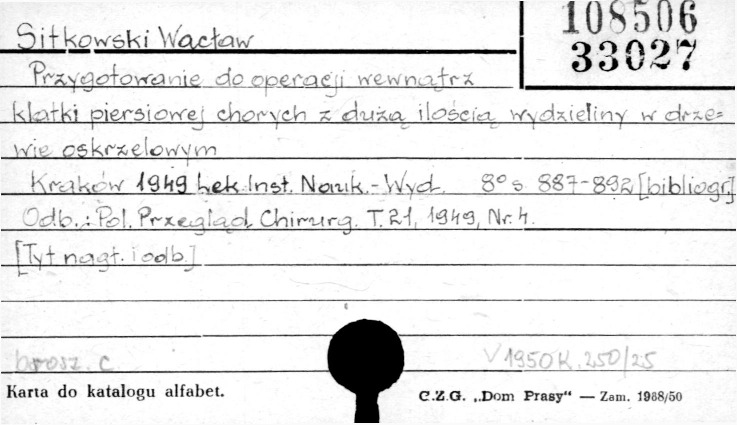 108506
33027
Sitkowski Wacław
Przygotowanie do operacji wewnątrz
klatki piersiowej chorych z dużą ilością wydzieliny w drze=
wie oskrzelowym
Kraków 1949 Lek. Inst. Nauk.-Wyd. 8° s 887-892 [bibliogr.]
Odb.: Pol. Przegląd Chirurg. T. 21, 1949, Nr. 4.
[Tyt nagł. i odb.]
brosz. c. V 1950 K. 250/25
Karta do katalogu alfabet. C.Z.G. „Dom Prasy“ — Zam. 1968/50